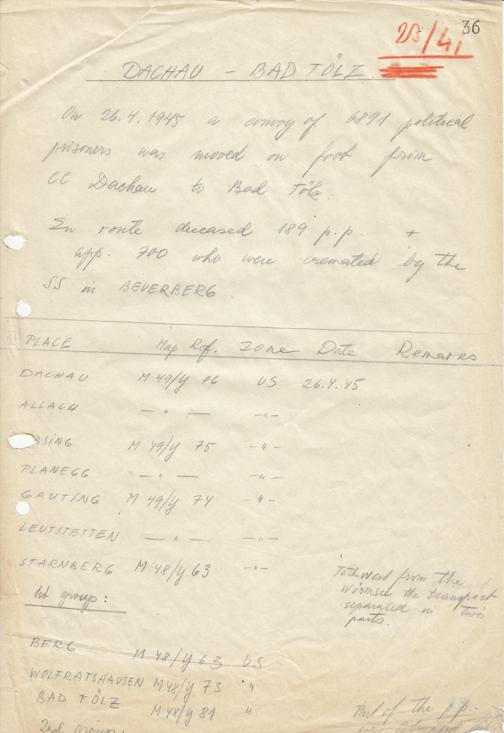 36
23/41
DACHAU - BAD TÖLZ
On 26.4.1945 a convoy of 6891 political
prisoners was moved on foot from
CC Dachau to Bad Tölz.
En route deceased 189 p.p. +
app. 700 who were cremated by the
SS in BEUERBERG
PLACE Map Ref. Zone Date Remarks
DACHAU M 49/Y 76 US 26.4.45
ALLACH — " — -"-
ASING M 49/Y 75 -"-
PLANEGG — " — -"-
GAUTING M 49/Y 74 -"-
LEUTSTETTEN — " — -"-
STARNBERG M 48/Y 63 -"-
from the
the transport
separated in two
parts.
1st group:
BERG M 48/Y 63 US
WOLFRATSHAUSEN M 48/Y 73 "
BAD TÖLZ M 48/Y 81 "
Part of the p.p.
2nd group: